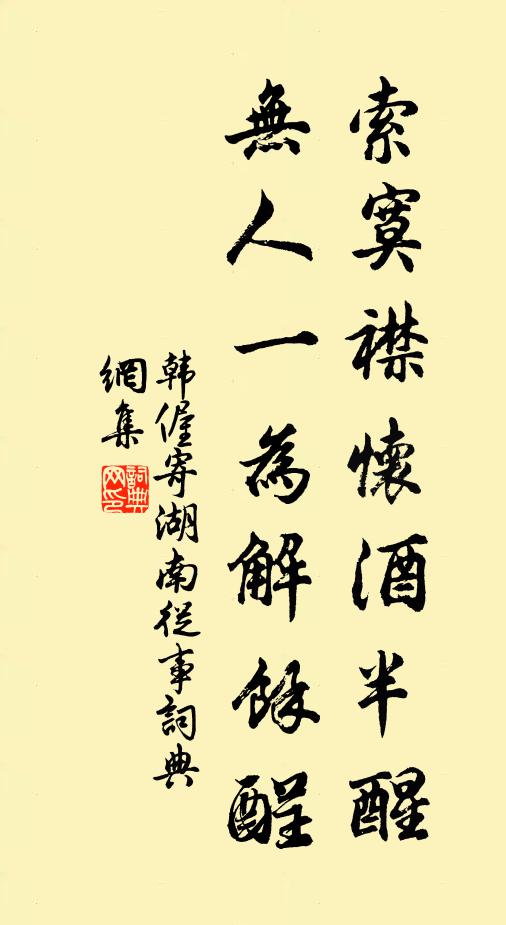 索寞襟懷酒半醒
無人一為解餘酲
韓偓寄湖南從事詞典
網集
詞典網印